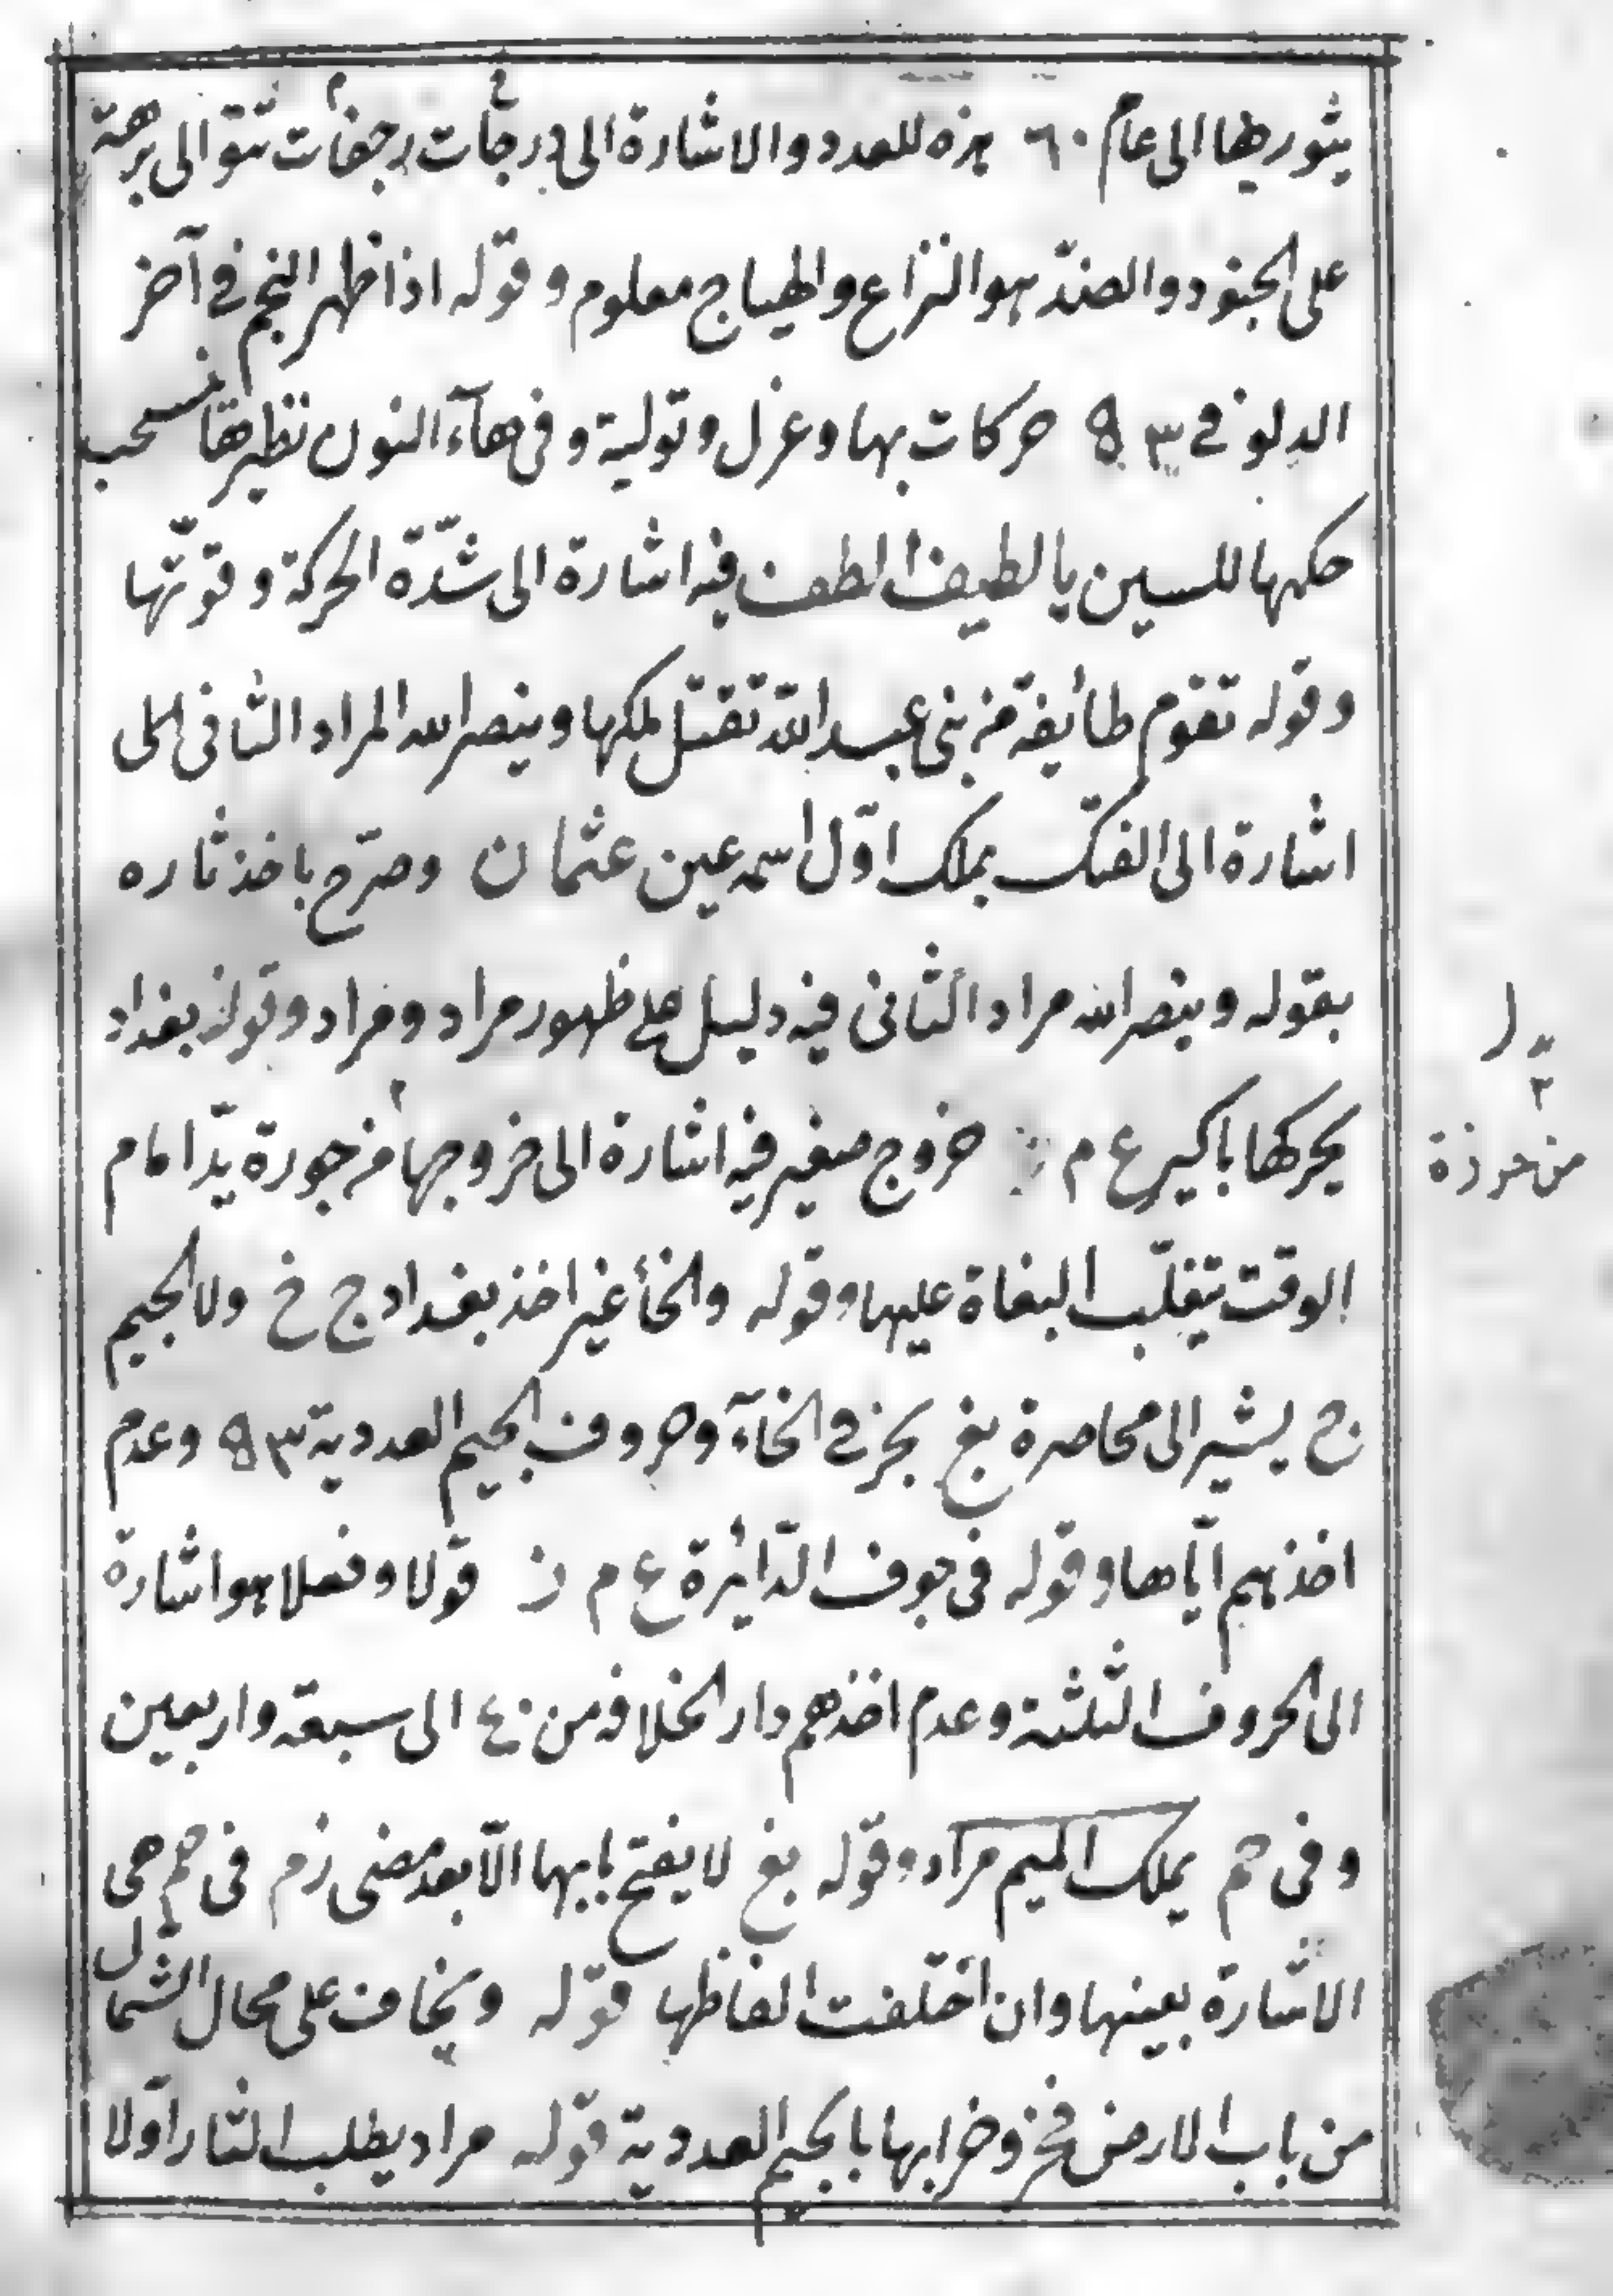 يثور بها الى عام ٦٠ هذه للعدد والاشارة الى رجفات تتوالى برهة
على الجنود والضدّ هو النزاع والهياج معلوم وقوله اذا ظهر النجم في آخر
الدلو في ٣ حركات بها وعزل وتولية وفي هآء النون نظيرها
حكمها للسين يا لطيف الطف فيه اشارة الى شدّة الحركة وقوّتها
وقوله تقوم طائفة من بنى عبد الله تقتل ملكها وينصر الله المراد الثانى
اشارة الى الفتك بملك اوّل اسمه عين عثمان وصرّح باخذ ثاره
بقوله وينصر الله مراد الثانى فيه دليل على ظهور مراد ومراد وقوله بغداد
يحركها ع م خروج صغير فيه اشارة الى خروجها من حوزة يد امام
الوقت بتغلّب البغاة عليها وقوله والخا غير اخذ بغداد ج خ ولا الجيم
ح يشير الى محاصرة بغ فى الخآء وحروف الجيم العددية ٣ وعدم
اخذهم ايّاها وقوله فى جوف الدّائرة ع م ن قولا وفعلا هو اشارة
الى الحروف الثلثة وعدم اخذهم دار الخلافة من ٤٠ الى سبعة واربعين
وفى يملك الميم مراد وقوله بغ لا يفتح بابها الّا بعد مضى زم فى هى
الاشارة بعينها وان اختلفت الفاظها قوله ويخاف على محال الشمال
من باب الارض وخرابها بالجيم العددية قوله مراد يطلب الثار اوّلا
من حوزة